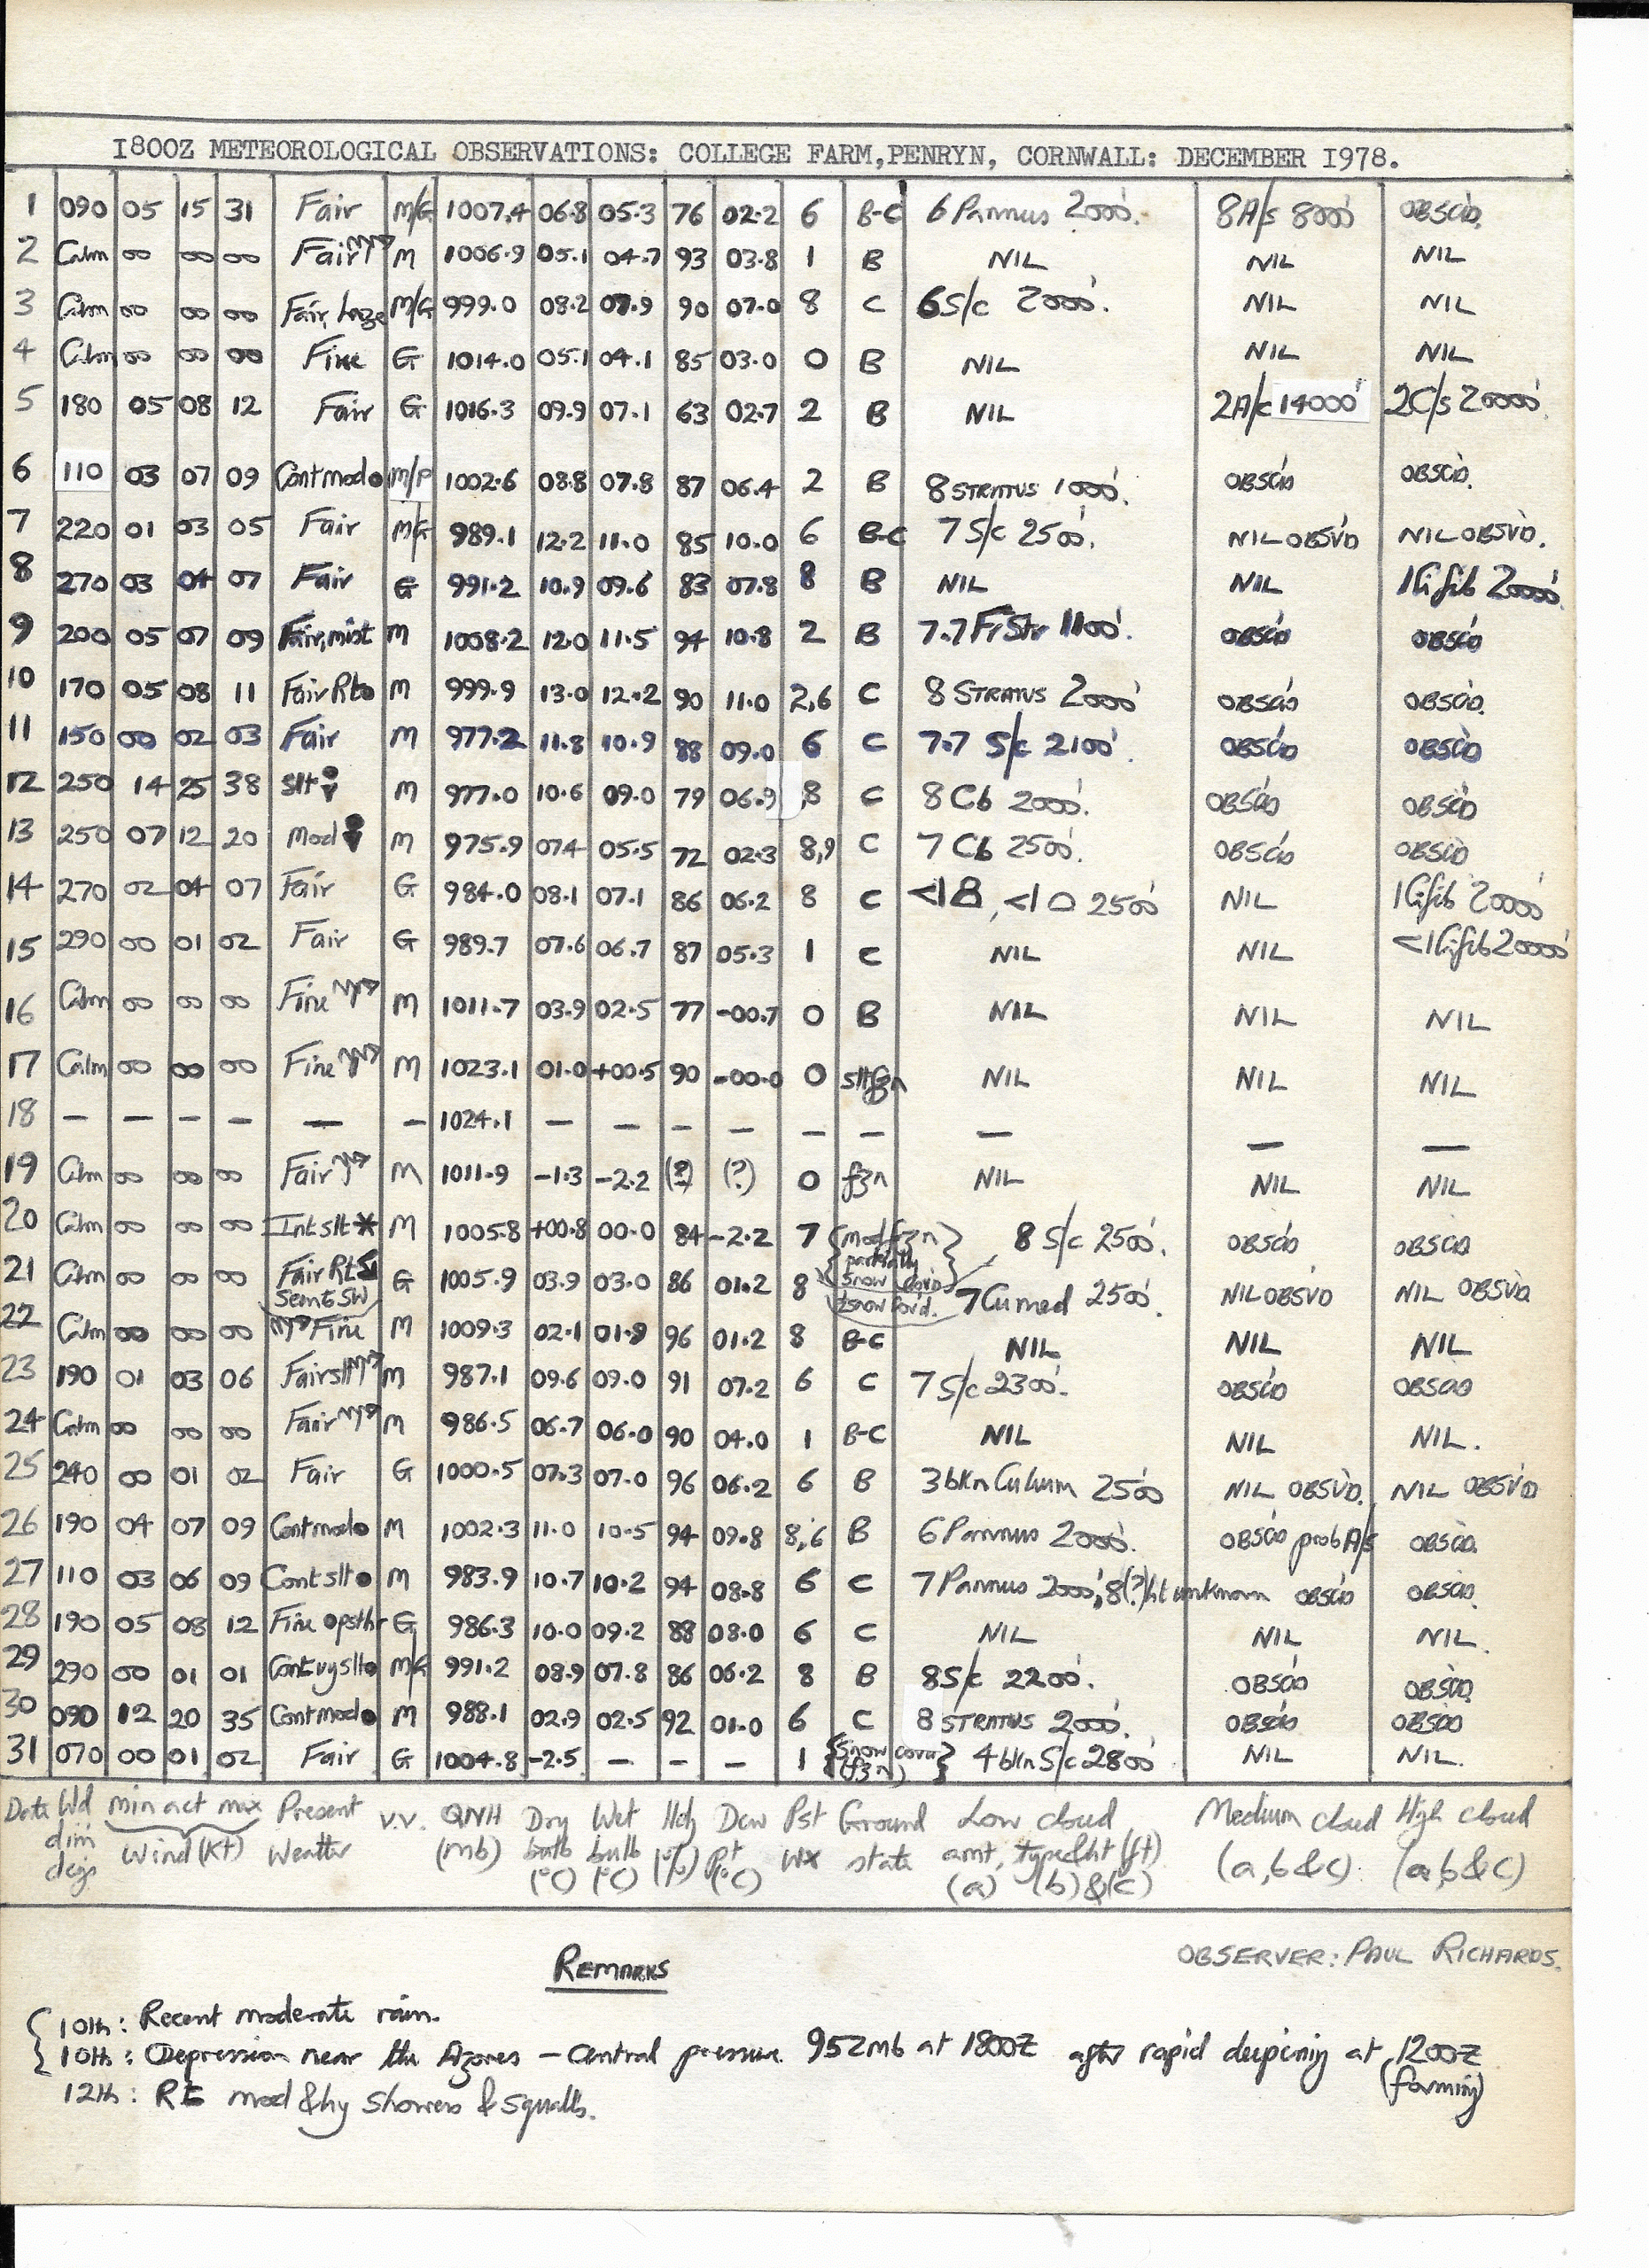 1800Z METEOROLOGICAL OBSERVATIONS: COLLEGE FARM, PENRYN, CORNWALL: DECEMBER 1978.
1 090 05 15 31 Fair M/G 1007.4 06.8 05.3 76 02.2 6 B-C 6 Pannus 2000'. 8A/s 8000' OBSC'D.
2 Calm 00 00 00 Fair M 1006.9 05.1 04.7 93 03.8 1 B NIL NIL NIL
3 Calm 00 00 00 Fair, haze M/G 999.0 08.2 07.9 90 07.0 8 C 6 S/c 2000'. NIL NIL
4 Calm 00 00 00 Fine G 1014.0 05.1 04.1 85 03.0 0 B NIL NIL NIL
5 180 05 08 12 Fair G 1016.3 09.9 07.1 63 02.7 2 B NIL 2A/c 14000' 2C/s 20000'
6 110 03 07 09 Cont mod ● M/P 1002.6 08.8 07.8 87 06.4 2 B 8 STRATUS 1000'. OBSC'D OBSC'D.
7 220 01 03 05 Fair M/G 989.1 12.2 11.0 85 10.0 6 B-C 7 S/c 2500'. NIL OBSV'D NIL OBSV'D.
8 270 03 04 07 Fair G 991.2 10.9 09.6 83 07.8 8 B NIL NIL 1Ci fib 20000'.
9 200 05 07 09 Fair, mist M 1008.2 12.0 11.5 94 10.8 2 B 7.7 FrStr 1100'. OBSC'D OBSC'D
10 170 05 08 11 Fair R to M 999.9 13.0 12.2 90 11.0 2,6 C 8 STRATUS 2000' OBSC'D OBSC'D.
11 150 00 02 03 Fair M 977.2 11.8 10.9 88 09.0 6 C 7.7 S/c 2100'. OBSC'D OBSC'D
12 250 14 25 38 slt M 977.0 10.6 09.0 79 06.9 8 C 8 Cb 2000'. OBSC'D OBSC'D
13 250 07 12 20 Mod M 975.9 07.4 05.5 72 02.3 8,9 C 7 Cb 2500'. OBSC'D OBSC'D
14 270 02 04 07 Fair G 984.0 08.1 07.1 86 06.2 8 C <1 , <1 2500' NIL 1Ci fib 20000'
15 290 00 01 02 Fair G 989.7 07.6 06.7 87 05.3 1 C NIL NIL <1Ci fib 20000'
16 Calm 00 00 00 Fine M 1011.7 03.9 02.5 77 -00.7 0 B NIL NIL NIL
17 Calm 00 00 00 Fine M 1023.1 01.0 +00.5 90 -00.0 0 slt fzn NIL NIL NIL
18 — — — — — — 1024.1 — — — — — — — — —
19 Calm 00 00 00 Fair M 1011.9 -1.3 -2.2 (?) (?) 0 fzn NIL NIL NIL
20 Calm 00 00 00 Int slt * M 1005.8 +00.8 00.0 84 -2.2 7 {mod fzn partially snow cov'd} 8 S/c 2500'. OBSC'D OBSC'D
21 Calm 00 00 00 Fair G 1005.9 03.9 03.0 86 01.2 8 snow cov'd. 7 Cu med 2500'. NIL OBSV'D NIL OBSV'D
22 Calm 00 00 00 Fine M 1009.3 02.1 01.9 96 01.2 8 B-C NIL NIL NIL
23 190 01 03 06 Fair slt M 987.1 09.6 09.0 91 07.2 6 C 7 S/c 2300'. OBSC'D OBSC'D
24 Calm 00 00 00 Fair M 986.5 06.7 06.0 90 04.0 1 B-C NIL NIL NIL.
25 240 00 01 02 Fair G 1000.5 07.3 07.0 96 06.2 6 B 3 bkn Cu hum 2500' NIL OBSV'D. NIL OBSV'D
26 190 04 07 09 Cont mod ● M 1002.3 11.0 10.5 94 09.8 8,6 B 6 Pannus 2000'. OBSC'D prob A/s OBSC'D.
27 110 03 06 09 Cont slt ● M 983.9 10.7 10.2 94 08.8 6 C 7 Pannus 2000', 8(?) ht unknown OBSC'D OBSC'D.
28 190 05 08 12 Fine G 986.3 10.0 09.2 88 08.0 6 C NIL NIL NIL.
29 290 00 01 01 Cont vy slt ● M/G 991.2 08.9 07.8 86 06.2 8 B 8S/c 2200'. OBSC'D OBSC'D
30 090 12 20 35 Cont mod ● M 988.1 02.9 02.5 92 01.0 6 C 8 STRATUS 2000'. OBSC'D OBSC'D
31 070 00 01 02 Fair G 1004.8 -2.5 — — — 1 {Snow cover (fzn)} 4 bkn S/c 2800' NIL NIL.
Date Wd min act max Present V.V. QNH Dry Wet Hdy Dew Pst Ground Low cloud Medium cloud High cloud
dirn Wind (Kt) Weather (mb) bulb bulb (%) Pt. Wx state amt, type & ht (ft) (a, b & c). (a, b & c)
degs (°C) (°C) (°C) (a) (b) & (c)
REMARKS
OBSERVER: PAUL RICHARDS.
10th: Recent moderate rain.
10th: Depression near the Azores – Central pressure 952mb at 1800Z after rapid deepening at 1200Z
(forming)
12th: RE mod & hy showers & squalls.